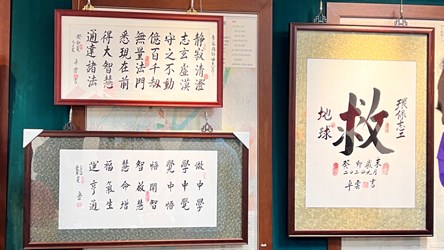 靜寂清澄
志玄虛漠
守之不動
億百千劫
無量法門
悉現在前
得大智慧
通達諸法
做中學
學中覺
覺中悟
悟開智
智啟慧
慧命增
福氣生
運亨通
環保志工
救
地球
癸卯歲末